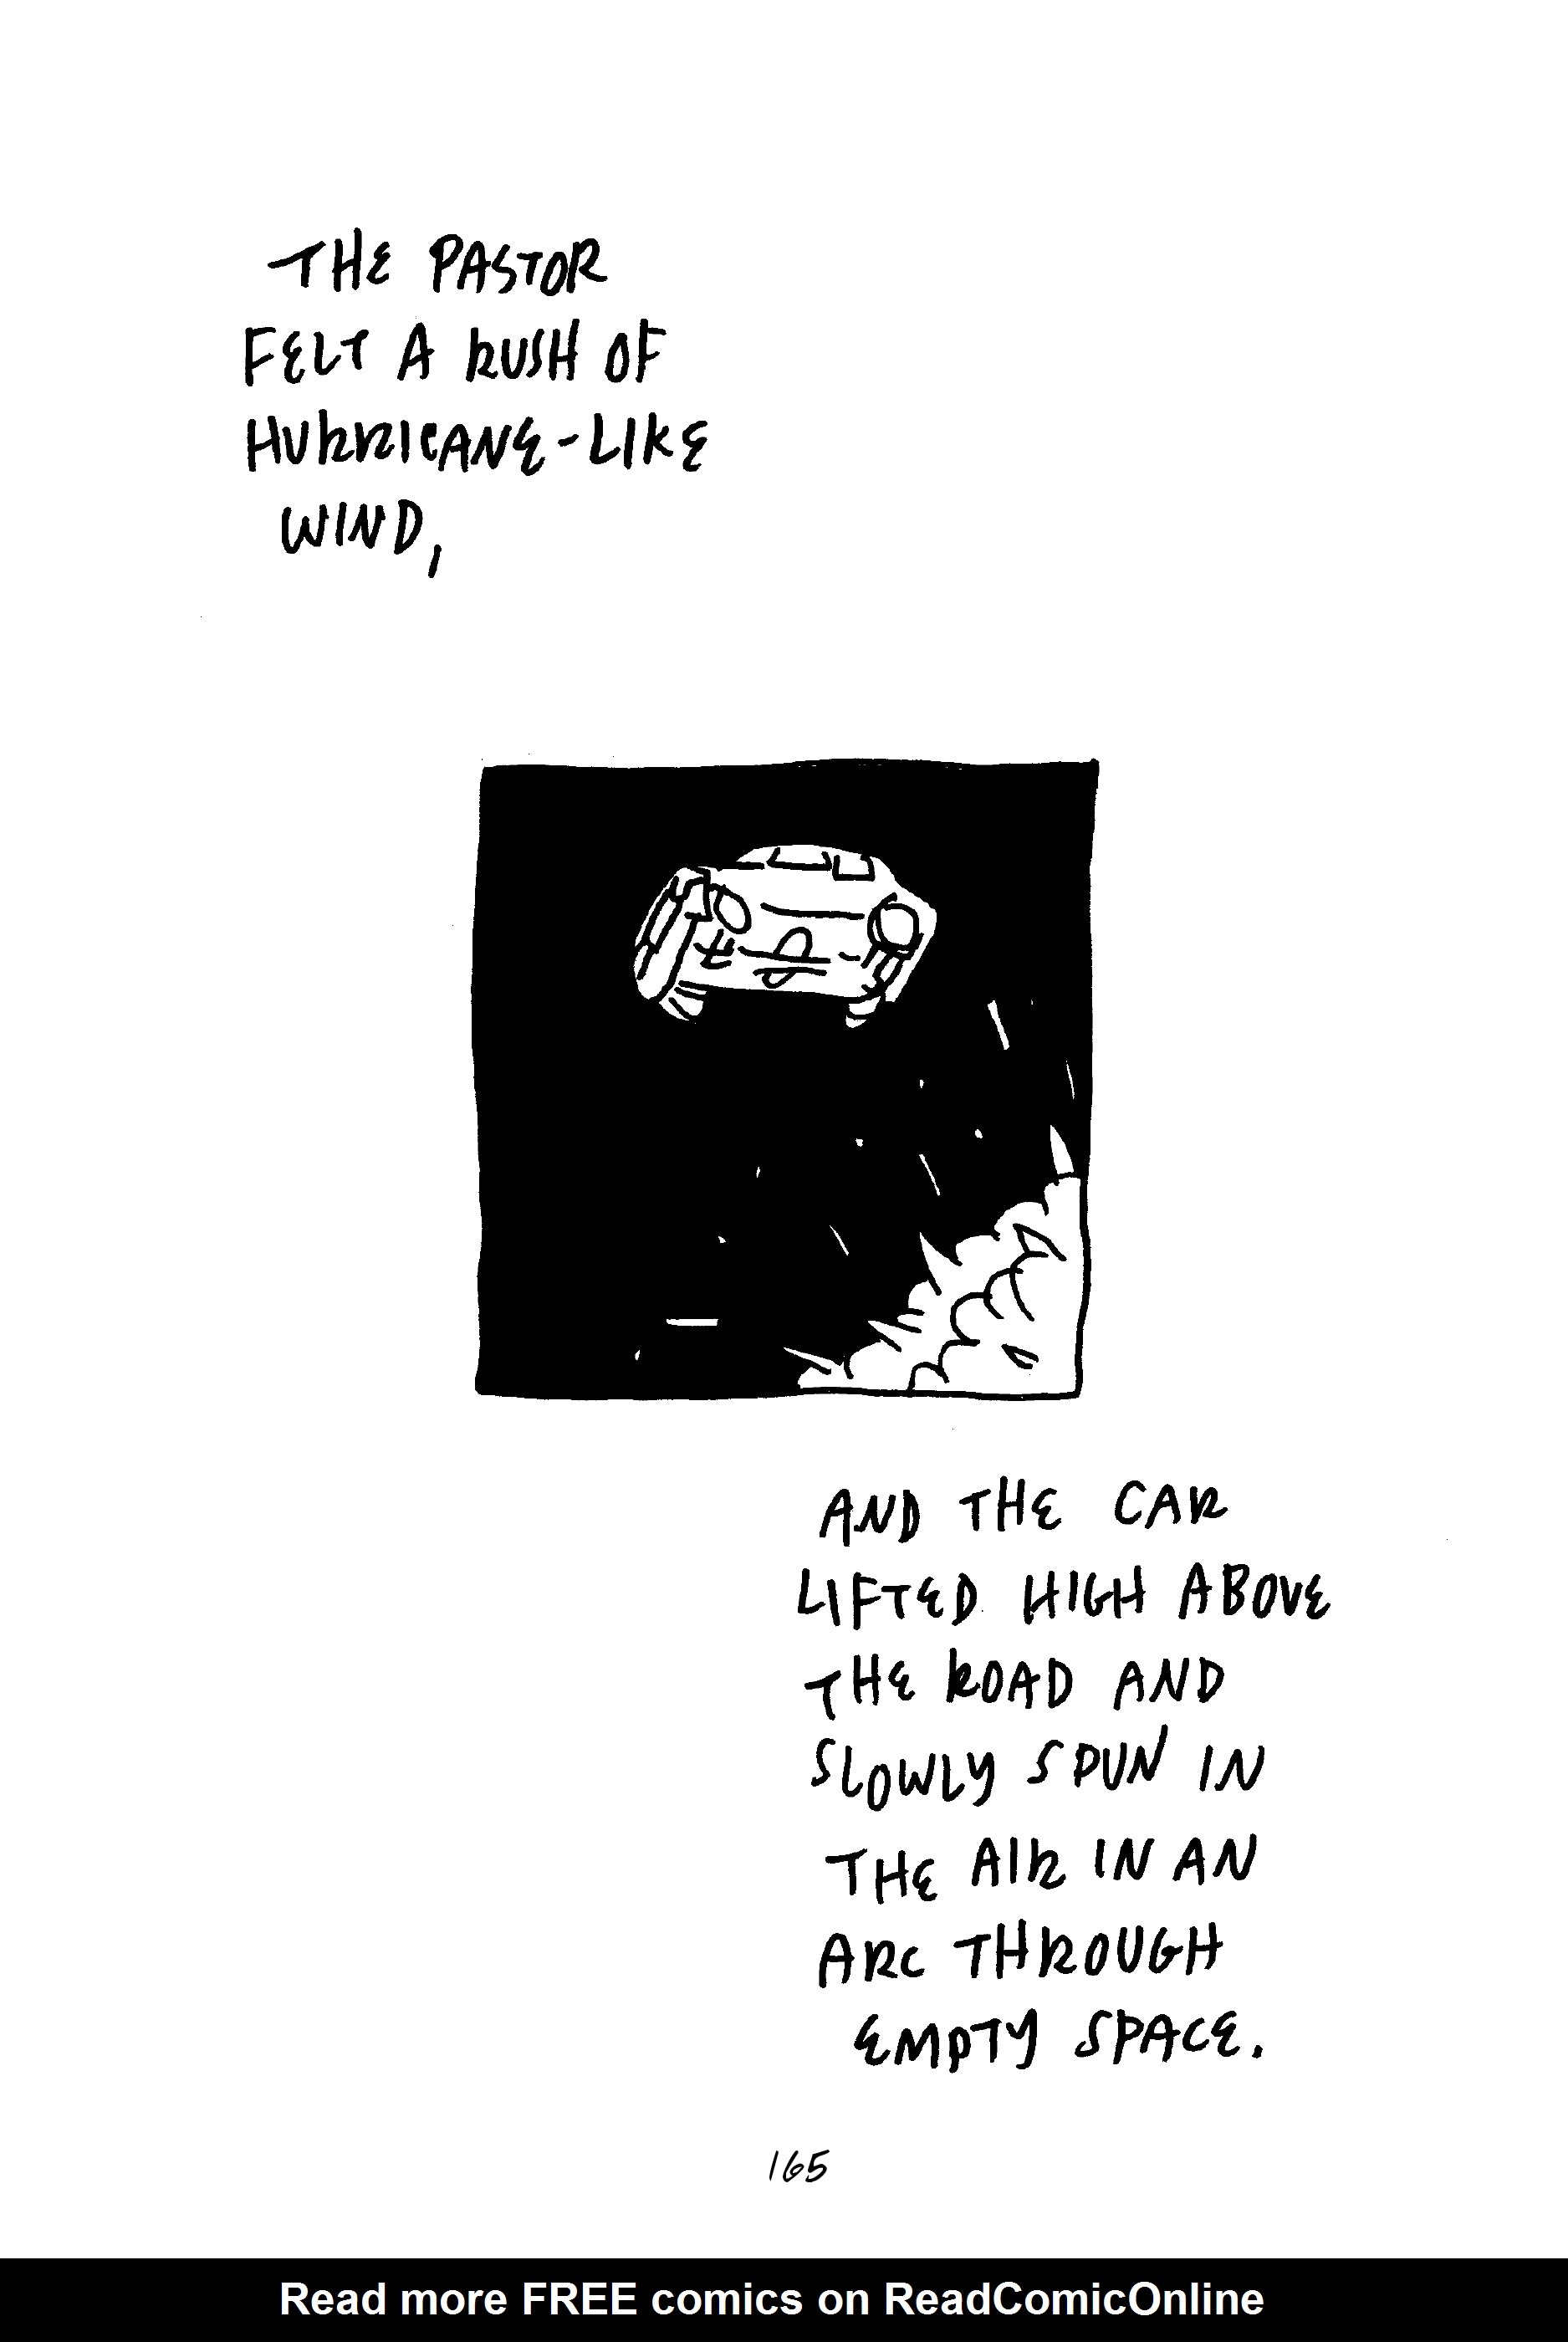 THE PASTOR
FELT A RUSH OF
HURRICANE-LIKE
WIND,
AND THE CAR
LIFTED HIGH ABOVE
THE ROAD AND
SLOWLY SPUN IN
THE AIR IN AN
ARC THROUGH
EMPTY SPACE.
165
Read more FREE comics on ReadComicOnline